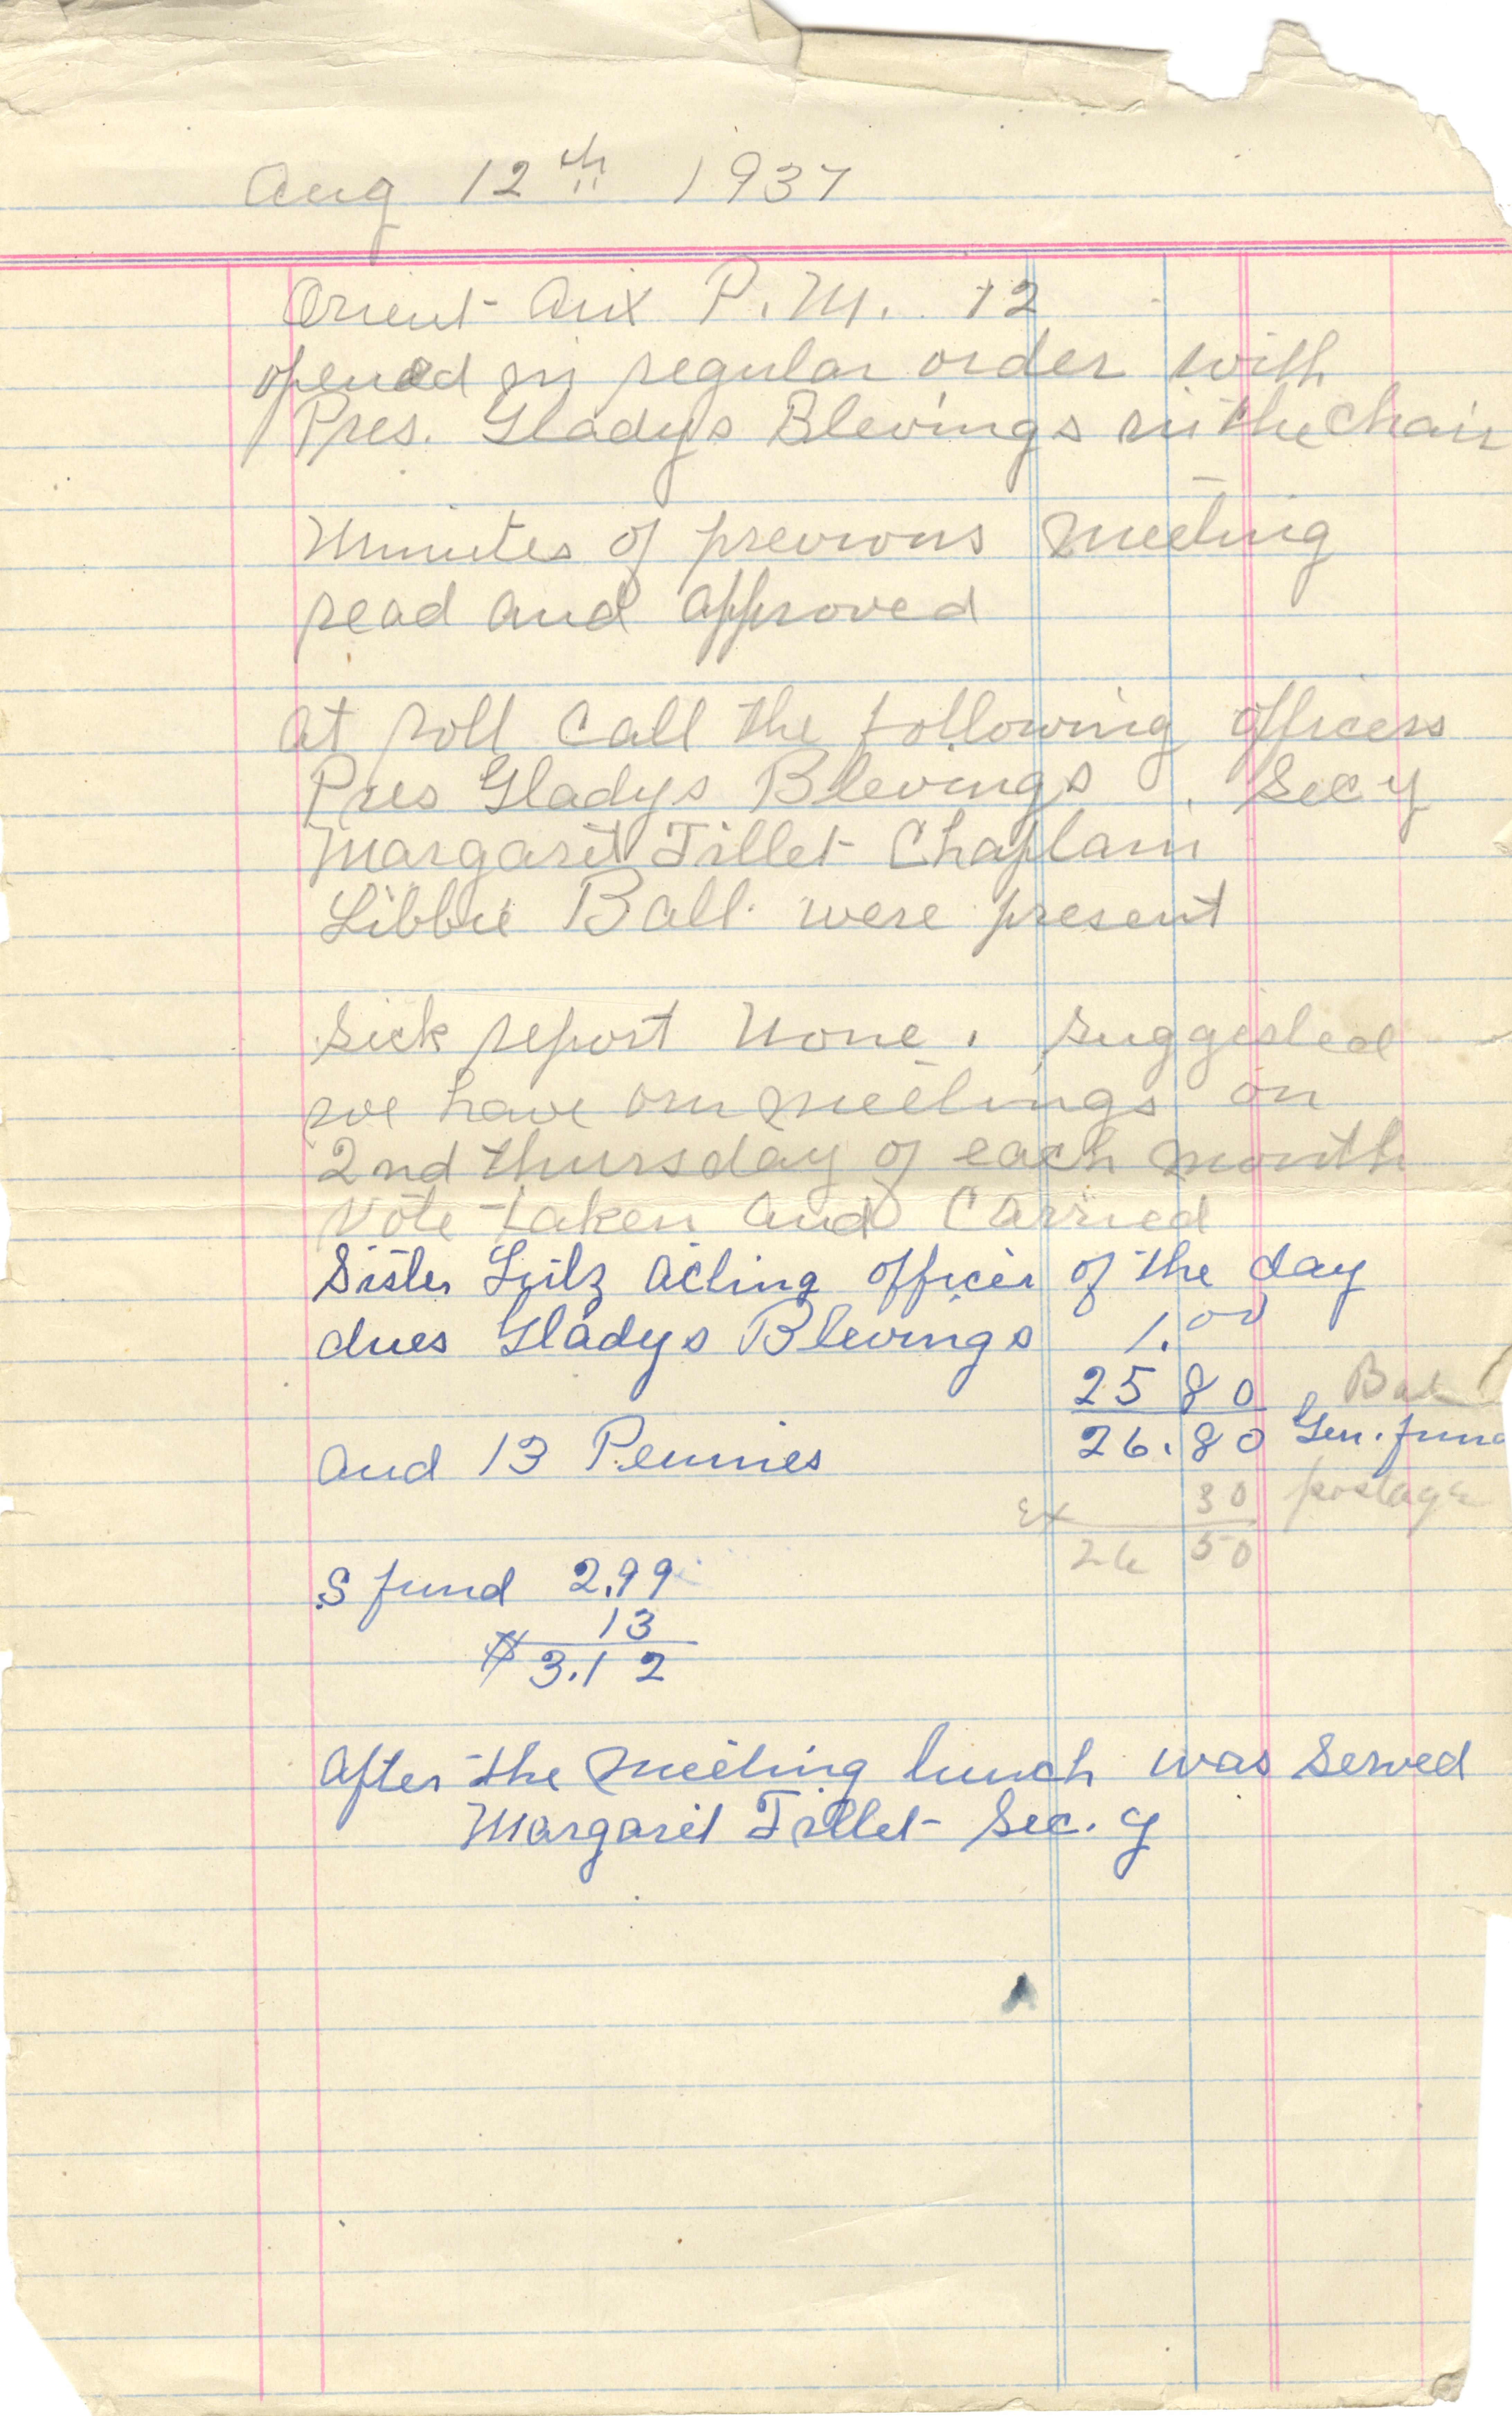 Aug 12th 1937
Orient Aux P.M. 12
opened in regular order with
Pres. Gladys Blevings in the Chair
Minutes of previous meeting
read and approved
At roll call the following officers
Pres Gladys Blevings, Secy
Margaret Tillet Chaplain
Libbie Ball. were present
Sick report none. Suggested
we have our meetings on
2nd Thursday of each month
Vote taken and carried
Sister Lutz acting officer of the day
dues Gladys Blevings 1.00
25 80 Bal
and 13 Pennies 26.80 Gen. fund
Ex 30 postage
26 50
S fund 2.99
13
$3.12
After the meeting lunch was served
Margaret Tillet Sec.y